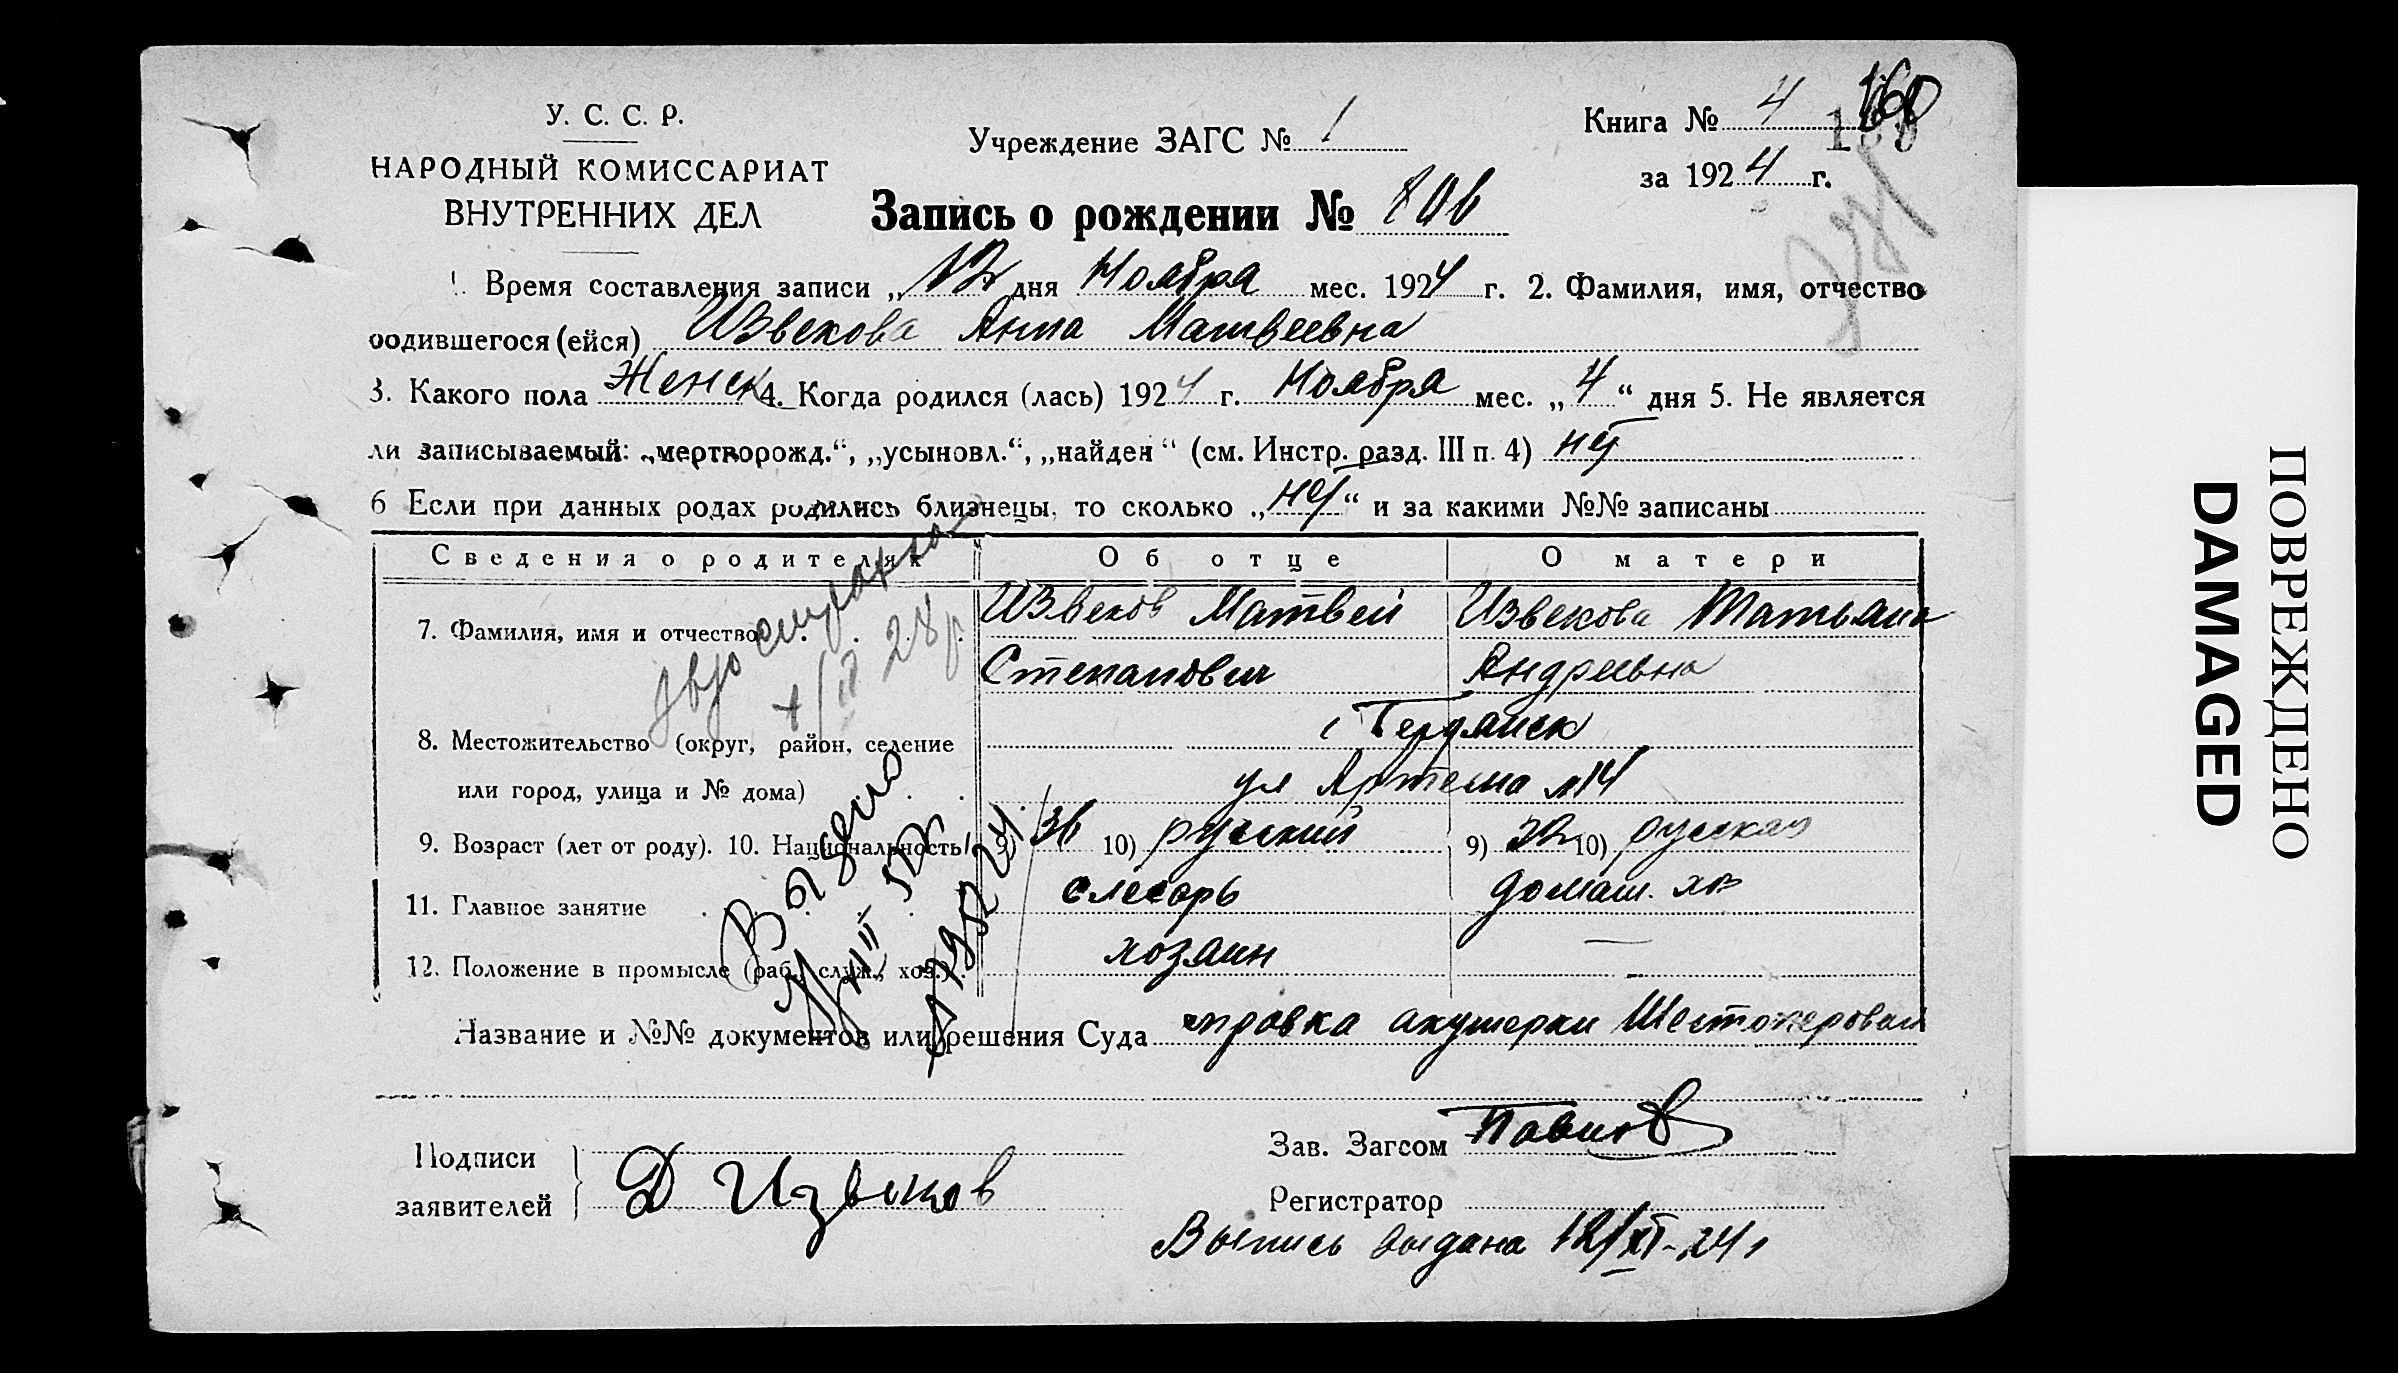 У. С. С. Р.
НАРОДНЫЙ КОМИССАРИАТ
ВНУТРЕННИХ ДЕЛ
Учреждение ЗАГС № 1
Книга № 4
за 1924 г.
Запись о рождении № 806
1. Время составления записи „12 дня Ноября мес. 1924 г. 2. Фамилия, имя, отчество
родившегося (ейся) Извекова Анна Матвеевна
3. Какого пола Женск 4. Когда родился (лась) 1924 г. Ноября мес. „4“ дня 5. Не является
ли записываемый: „мертворожд.“, „усыновл.“, „найден“ (см. Инстр. разд. III п. 4) нет
6 Если при данных родах родились близнецы, то сколько „нет“ и за какими №№ записаны
Сведения о родителях Об отце О матери
7. Фамилия, имя и отчество Извеков Матвей Извекова Татьяна
Степанович Андреевна
8. Местожительство (округ, район, селение г Бердянск
или город, улица и № дома) ул Артема №14
9. Возраст (лет от роду). 10. Национальность 9) 36 10) русский 9) 32 10) русская
11. Главное занятие слесарь домаш. хоз
12. Положение в промысле (раб., служ., хоз.) хозяин —
Название и №№ документов или решения Суда справка акушерки Шестоперовой
Подписи
заявителей
Д Извеков
Зав. Загсом
Регистратор
Выпись выдана 12/XI-24 г
Выдано
ПОВРЕЖДЕНО
DAMAGED